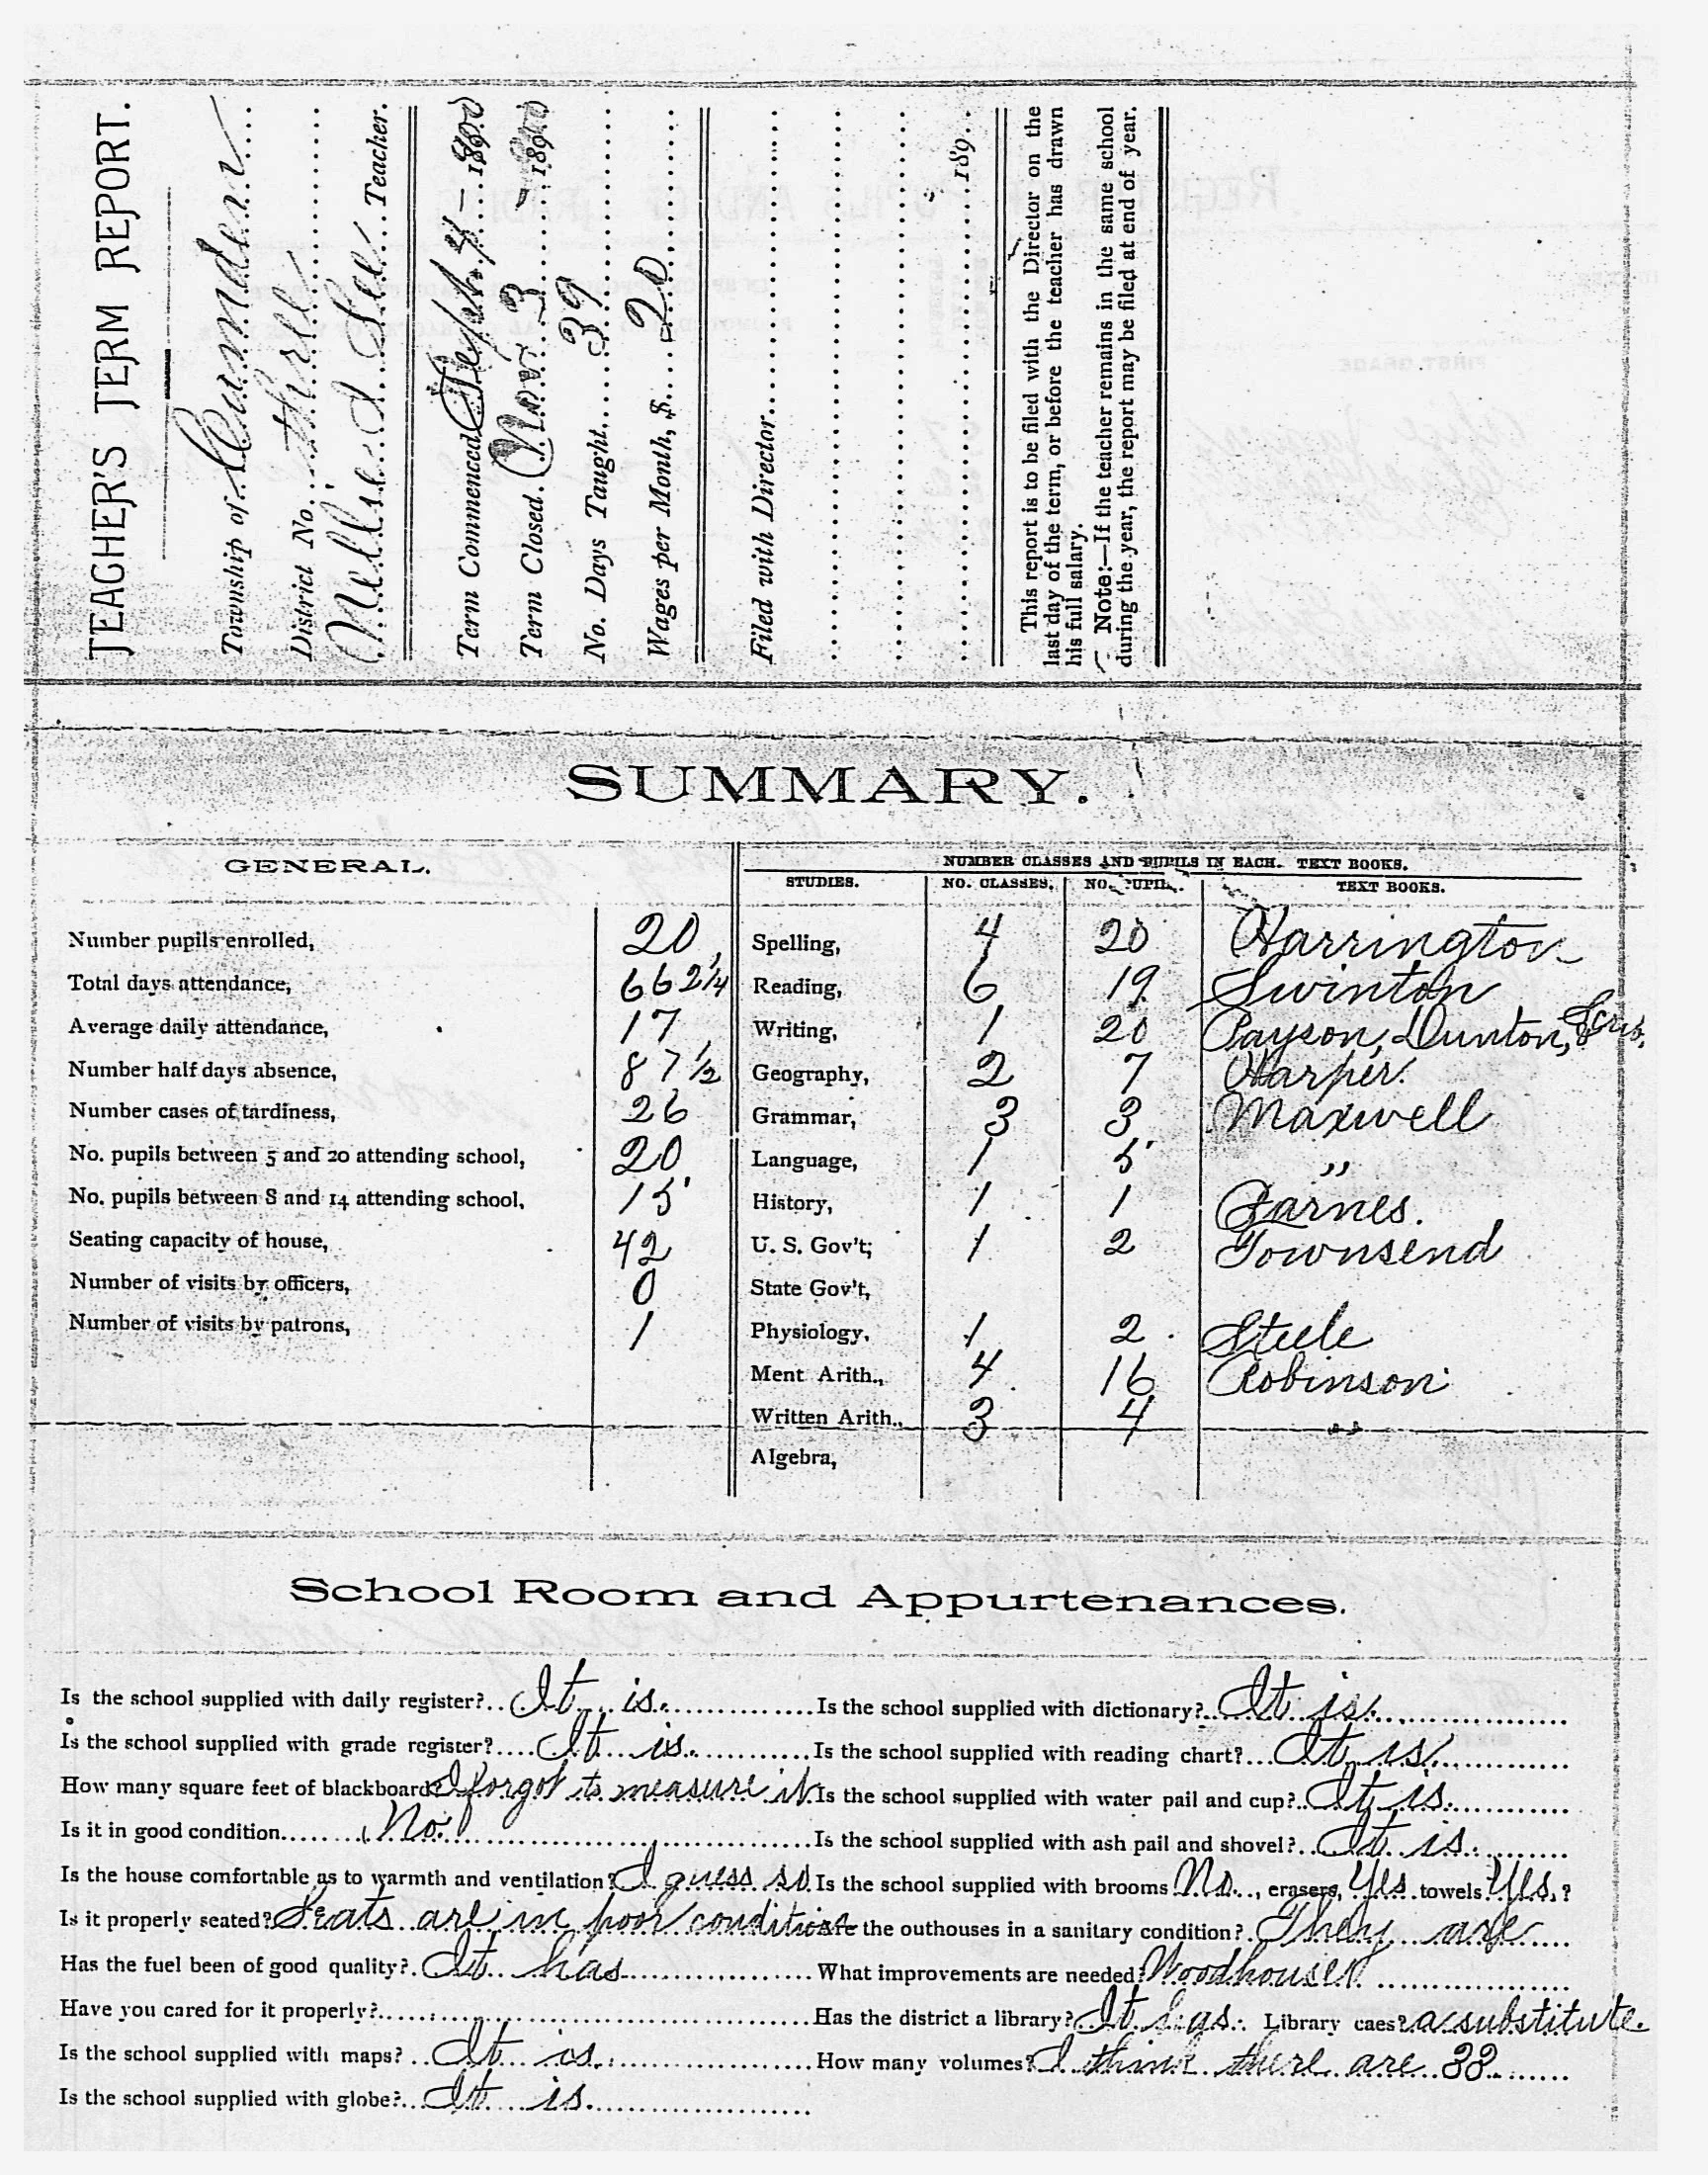 TEACHER'S TERM REPORT.
Township of Camden
District No. three
Nellie I Lee Teacher.
Term Commenced Sept 4 — 1900
Term Closed. Nov 3 - 1900
No. Days Taught 39
Wages per Month, $ 20
Filed with Director
189
This report is to be filed with the Director on the
last day of the term, or before the teacher has drawn
his full salary.
Note:—If the teacher remains in the same school
during the year, the report may be filed at end of year.
SUMMARY.
GENERAL.
Number pupils enrolled, 20
Total days attendance, 662 1/4
Average daily attendance, 17
Number half days absence, 87 1/2
Number cases of tardiness, 26
No. pupils between 5 and 20 attending school, 20
No. pupils between 8 and 14 attending school, 15
Seating capacity of house, 42
Number of visits by officers, 0
Number of visits by patrons, 1
NUMBER CLASSES AND PUPILS IN EACH. TEXT BOOKS.
STUDIES. NO. CLASSES. NO. PUPILS. TEXT BOOKS.
Spelling, 4 20 Harrington
Reading, 6 19 Swinton
Writing, 1 20 Payson, Dunton, & Scrib.
Geography, 2 7 Harper.
Grammar, 3 3 Maxwell
Language, 1 5 "
History, 1 1 Barnes.
U. S. Gov't; 1 2 Townsend
State Gov't,
Physiology, 1 2 Steele
Ment Arith., 4 16 Robinson
Written Arith., 3 4 "
Algebra,
School Room and Appurtenances.
Is the school supplied with daily register? It is. Is the school supplied with dictionary? It is.
Is the school supplied with grade register? It is. Is the school supplied with reading chart? It is.
How many square feet of blackboard? I forgot to measure it. Is the school supplied with water pail and cup? It is.
Is it in good condition No. Is the school supplied with ash pail and shovel? It is.
Is the house comfortable as to warmth and ventilation? I guess so. Is the school supplied with brooms No., erasers, Yes towels Yes.?
Is it properly seated? Seats are in poor condition Are the outhouses in a sanitary condition? They are
Has the fuel been of good quality? It has What improvements are needed? Woodhouse
Have you cared for it properly? Has the district a library? It has. Library caes? a substitute.
Is the school supplied with maps? It is. How many volumes? I think there are 33
Is the school supplied with globe? It is.